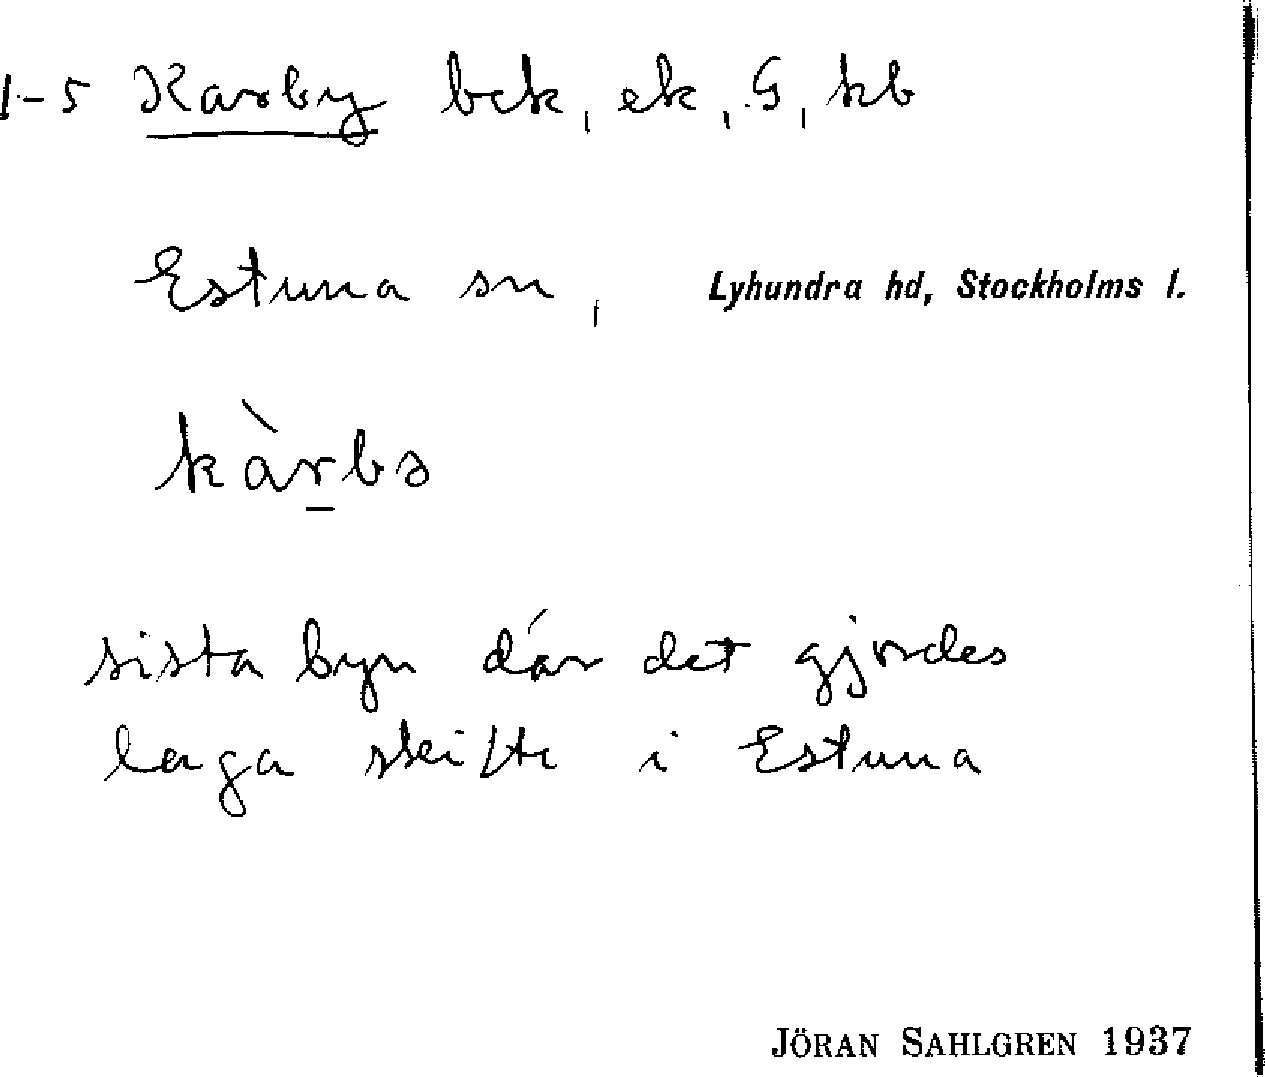 1-5 Karby bck, ek, G, kb
Estuna sn, Lyhundra hd, Stockholms l.
kàrbə
sista byn där det gjordes
laga skifte i Estuna
JÖRAN SAHLGREN 1937